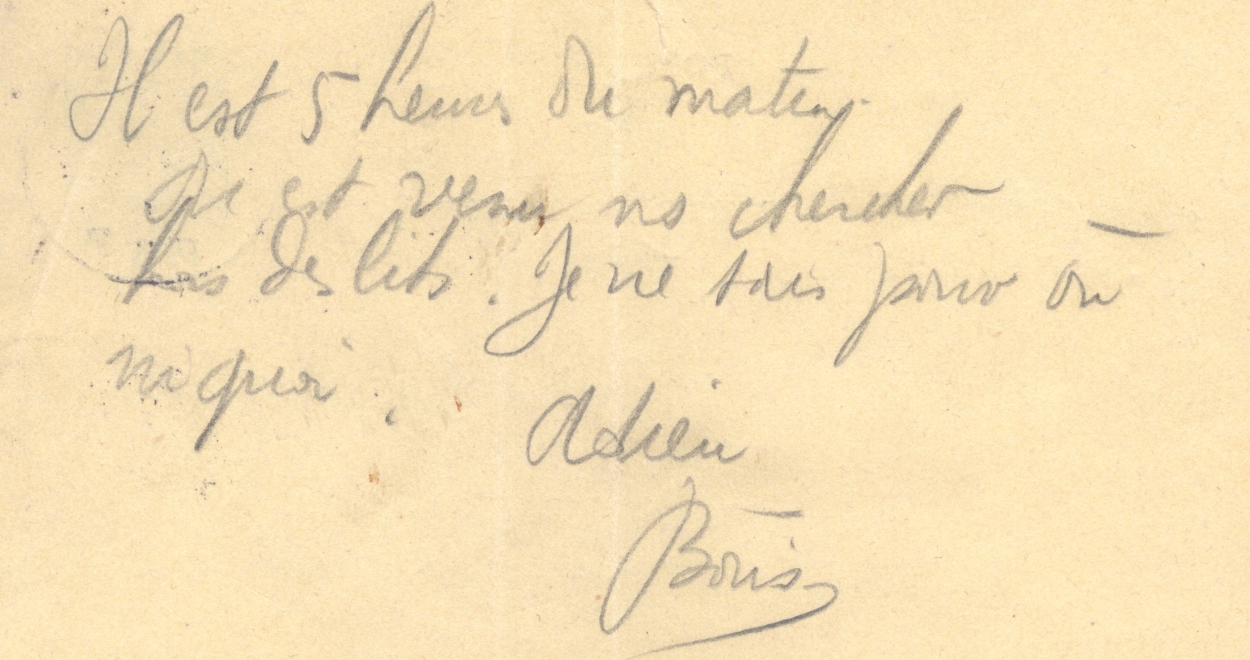 Il est 5 heures du matin.
On est venu ns chercher
bas des lits. Je ne sais pour où
ni quoi.
Adieu
Boris